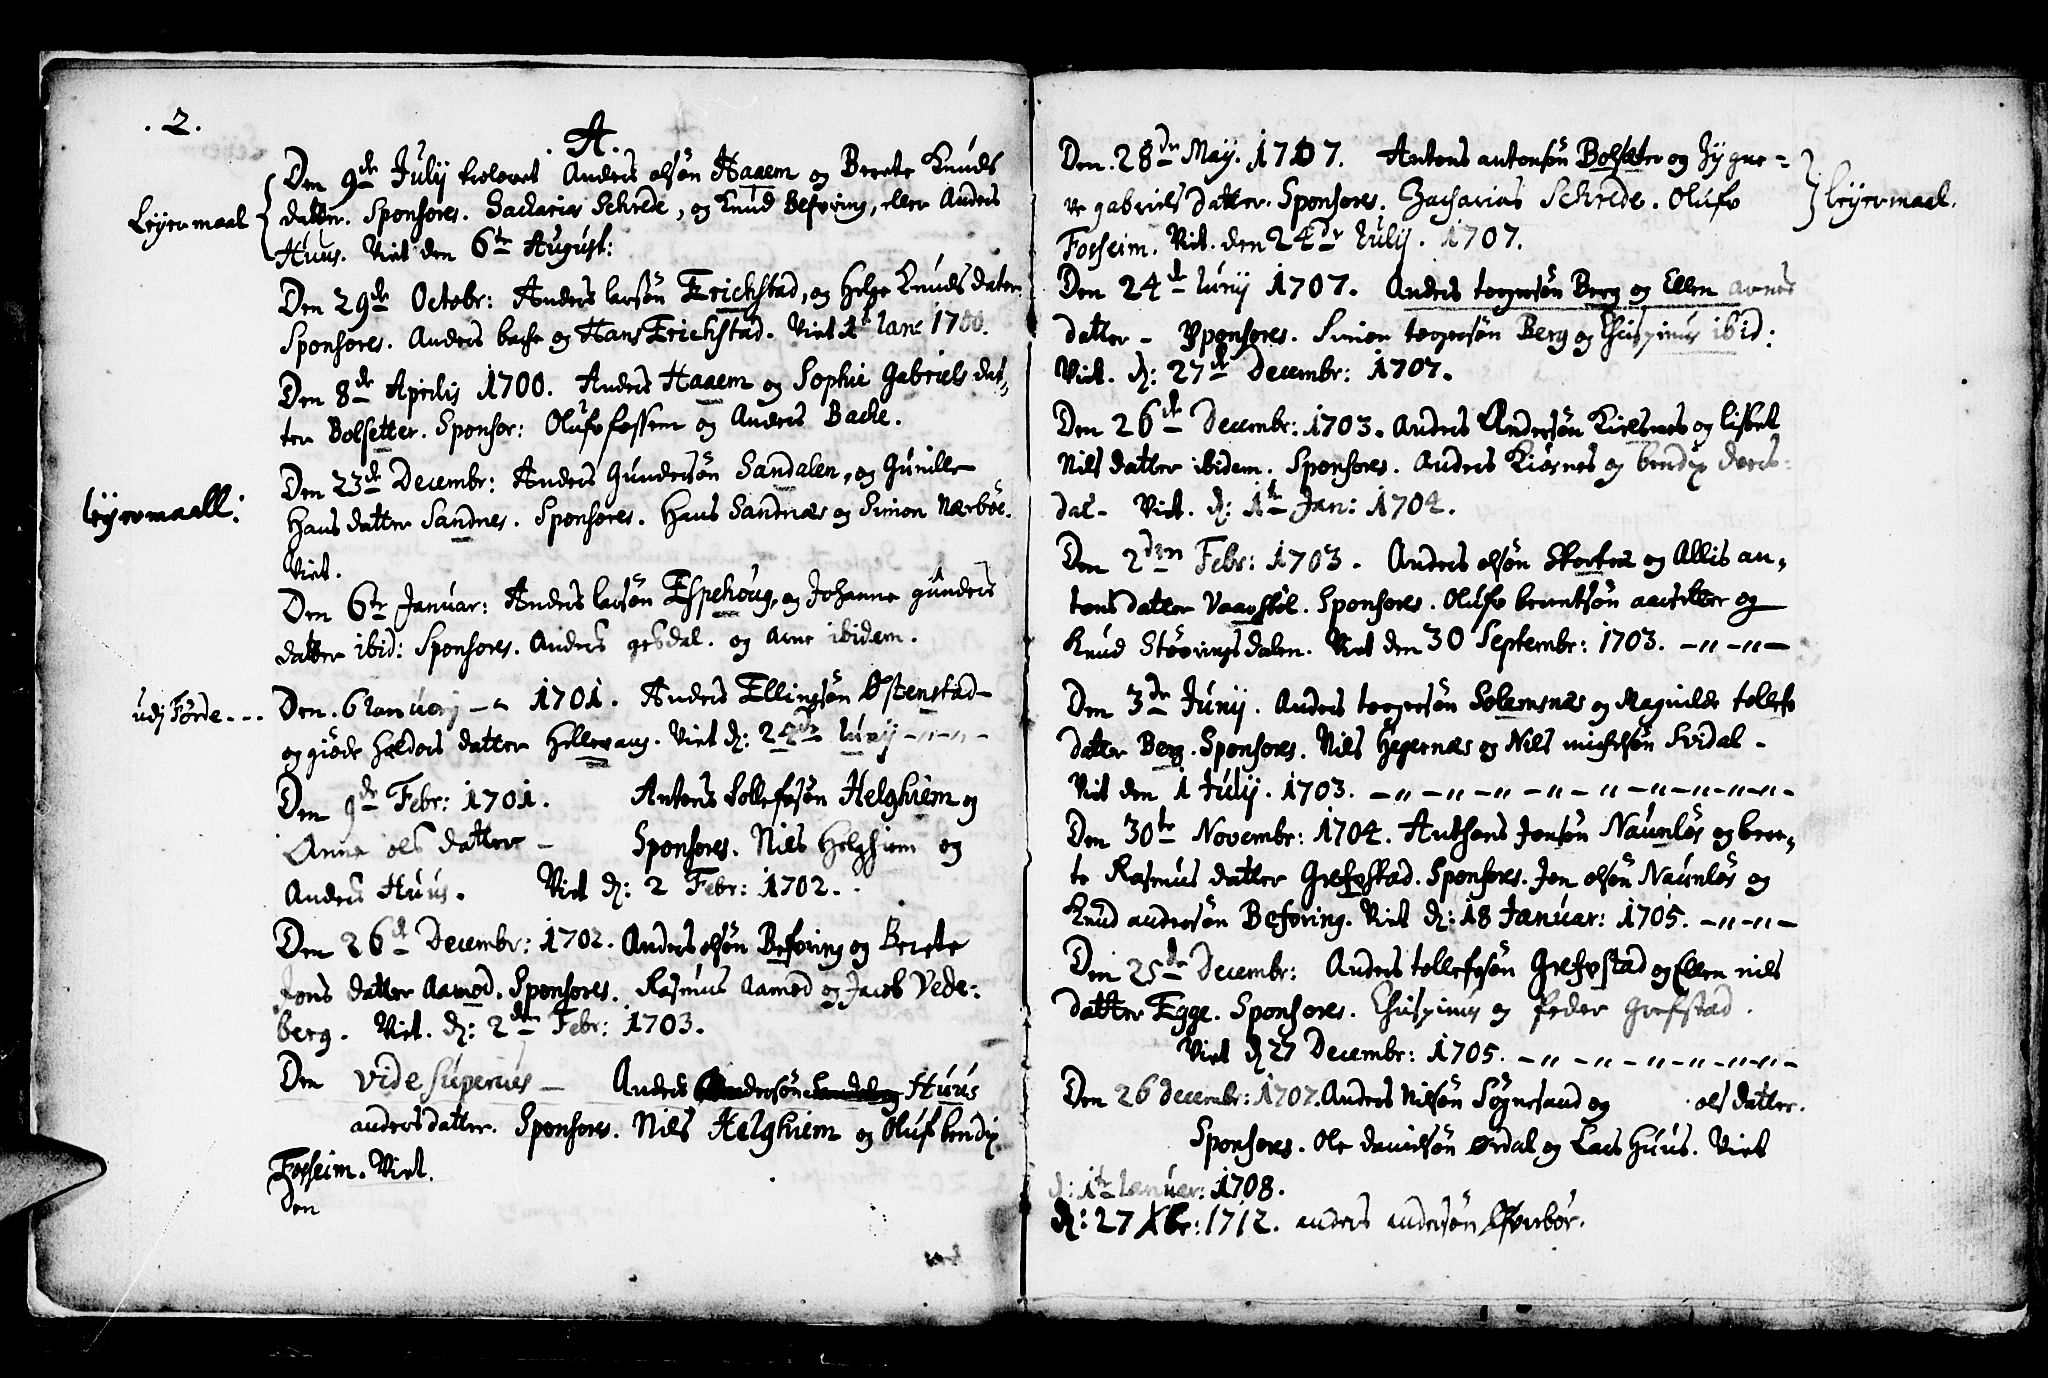 . 2.
. A.
Den 9de July trolovet Anders olsön Haaem og Berete Knuds
Leyermaal
datter. Sponsores. Zacharias Schrede, og Knud Befring, eller Anders
Huus. Viet den 6te August:
Den 29de Octobr: Anders larsön Erichstad, og Helge Knuds dater
Sponsores. Anders bache og Hans Erichstad. Viet 1t Jan: 1700.
Den 8de Aprilis 1700. Anders Haaem og Sophie Gabriels dat-
ter Bolsetter. Sponsor: Olufv fossem og Anders Bache.
Den 23de Decembr: Anders Gundersön Sandalen, og Gunille
leyermaall:
Hans datter Sandnes. Sponsores. Hans Sandnæs og Simon Nærböe.
Viet.
Den 6te Januar: Anders larsön Espehoug, og Johanne gunders
datter ibid: Sponsores. Anders gesdal. og Arne ibidem.
udj Førde---
Den. 6 Januarij - 1701. Anders Ellingsön Østenstad
og giöde haldors datter Hellevang. Viet d: 24de Junij
Den 9de Febr: 1701. Antons Tollefsön Helghiem og
Anne ols datter - Sponsores. Nils Helghiem og
Anders Huus. Viet d: 2 Febr: 1702.
Den 26de Decembr: 1702. Anders olsön Befring og Berete
Jons datter Aamod. Sponsores. Rasmus Aamod og Jacob Vede-
berg. Viet. d: 2den Febr: 1703.
Den vide superius - Anders Huus
anders datter. Sponsores. Nils Helghiem og Oluf bendix
Forseim. Viet.
Den
Den. 28de May. 1707. Antons antonsön Bolsæter og Zygne-
ve gabriels datter. Sponsores. Zacharias Schrede. Olufv
leyermaal.
Forseim. Viet. den 24de July. 1707.
Den 24de Junij 1707. Anders torgersön Berg og Ellen arnes
datter - Sponsores. Simon torgersön Berg og Chrispinus ibid:
Viet. d: 27de Decembr: 1707.
Den 26de Decembr: 1703. Anders Andersön Kiörsnes og lisbet
Nils datter ibidem. Sponsores. Anders Kiörnes og bendix
dal- Viet. d: 1te Jan: 1704.
Den 2den Febr: 1703. Anders olsön Skorten og Allis an-
tons datter Vaarstöl. Sponsores. Olufv berentsön aasetter og
Knud Stöfringsdalen. Viet den 30 Septembr: 1703.
Den 3de Junij. Anders torgersön Solemsnæs og Magnilde tollefs
datter Berg. Sponsores. Nils Hegernæs og Nils michelsön Svidal-
Viet den 1 July. 1703.
Den 30te Novembr: 1704. Anthons Jonsön Naunlös og bere-
te Rasmus datter Grefstad. Sponsores. Jon olsön Naunlös og
Knud andersön Befring. Viet d: 18 Januar: 1705.
Den 25de Decembr: Anders tollefsön Grefstad og Ellen nils
datter Egge. Sponsores. Chrispinus og Peder Grefstad.
Viet d 27 Decembr: 1705.
Den 26 decembr: 1707. Anders Nilsön Sögnesand og ols datter.
Sponsores. Ole davidsön Ørdal og Lars Huus. Viet
d: 1te Januar: 1708.
d: 27 Xbr: 1712. anders andersön